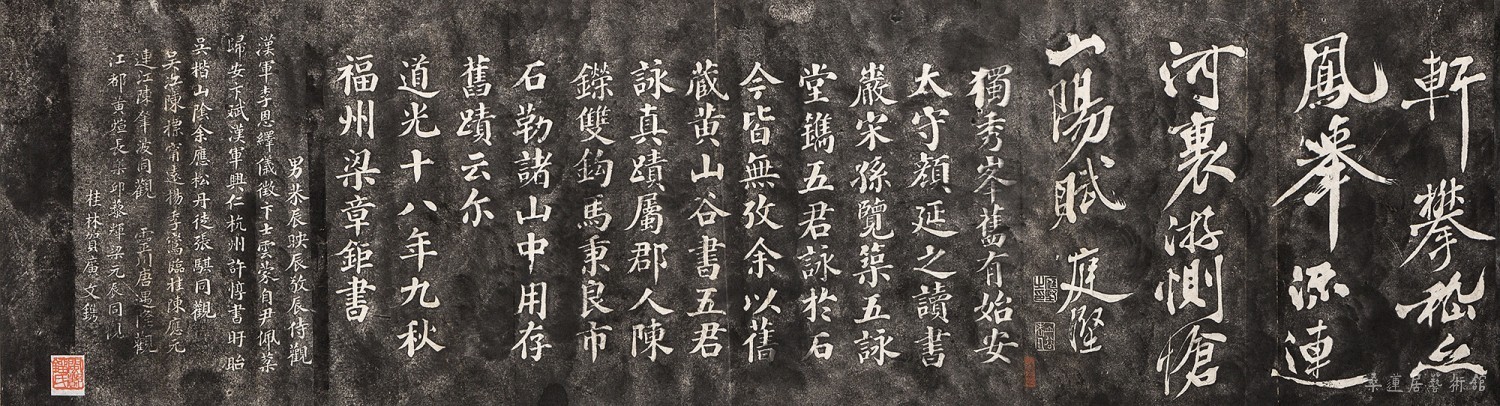 軒攀嵇亦
鳳舉流連
河裏游惻愴
山陽賦 庭堅
獨秀峯舊有始安
太守顏延之讀書
巖宋孫覽築五詠
堂鐫五君詠於石
今皆無攷余以舊
藏黃山谷書五君
詠真蹟屬郡人陳
鑅雙鉤馬秉良市
石勒諸山中用存
舊蹟云尒
道光十八年九秋
福州梁章鉅書
男恭辰映辰敬辰侍觀
漢軍李恩繹儀徵卞士雲蒙自尹佩棻
歸安卞斌漢軍興仁杭州許惇書盱眙
吳楷山陰余應松丹徒張騏同觀
陳標甯遠楊季鸞臨桂陳應元
連江陳 同觀
江都黃暄長樂邱 輝梁元辰同
桂林賀廣文鐫
桑蓮居藝術館